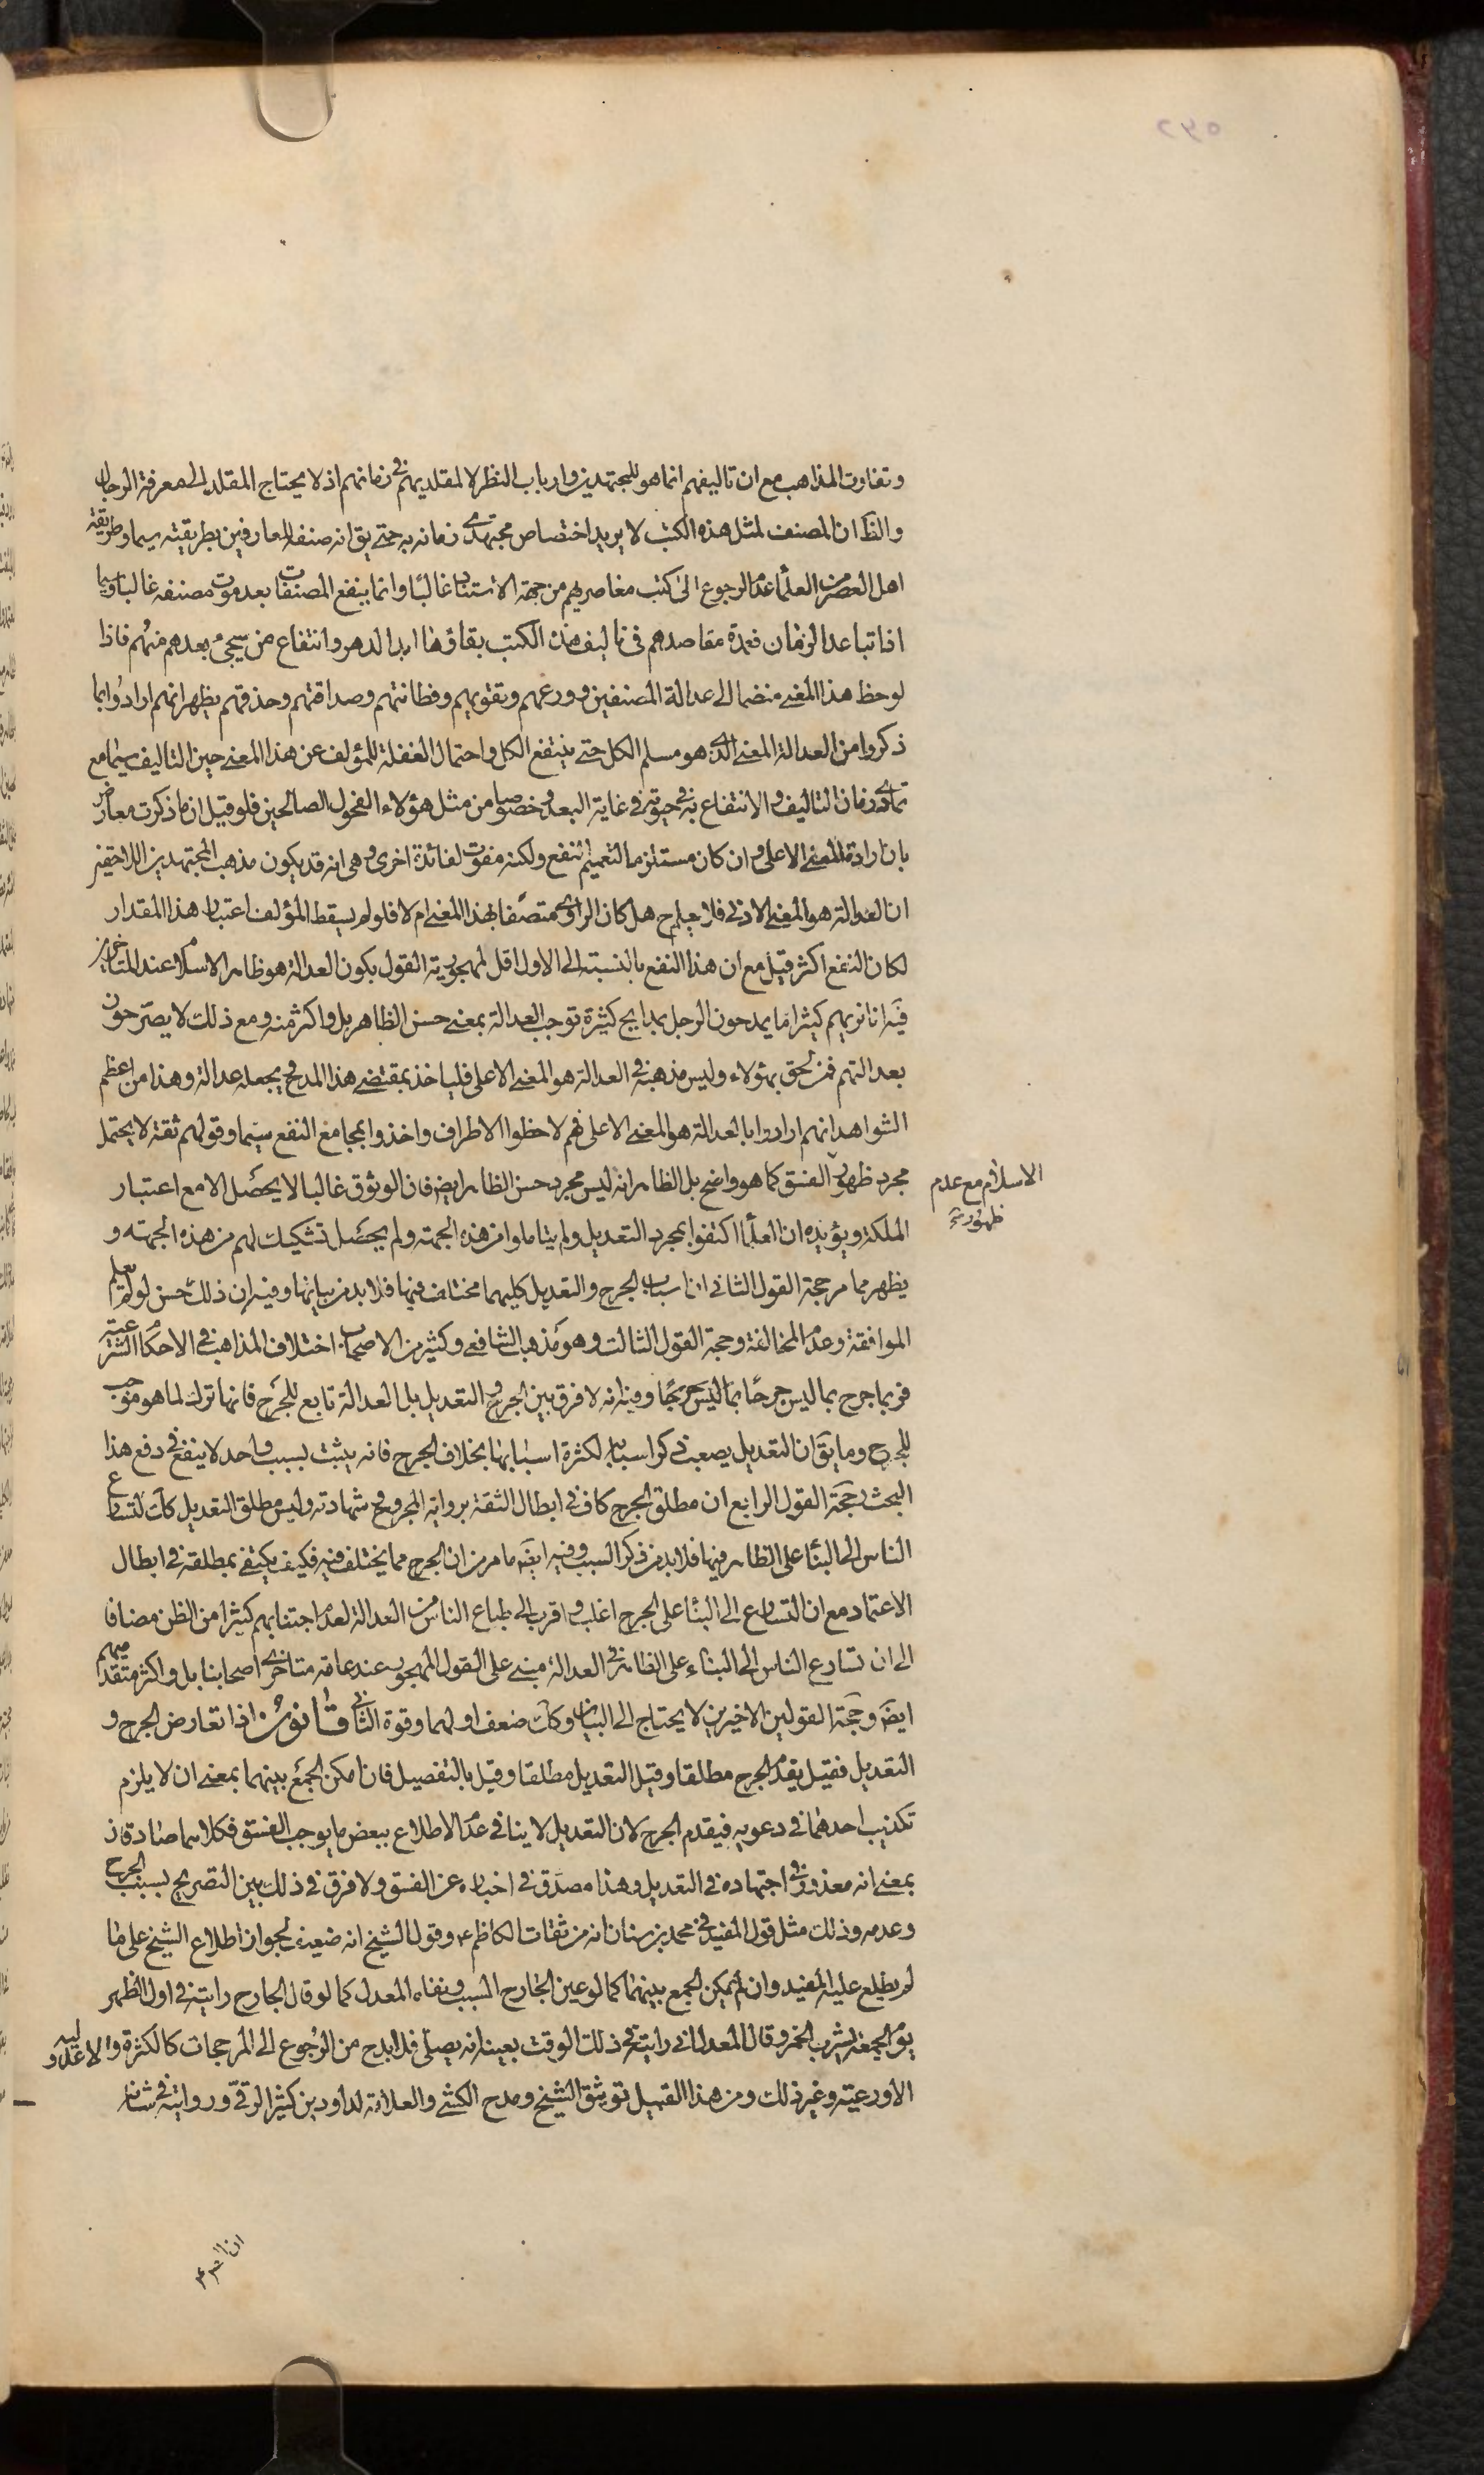 وتفاوت المذاهب مع ان تاليفهم انما هو للمجتهدين وارباب النظر لا لمقلديهم في زمانهم اذ لا يحتاج المقلد الى معرفة الرجال
والظ ان المصنف لمثل هذه الكتب لا يريد اختصاص مجتهدى زمانه به حتى يق انه صنفه للعارفين بطريقته سيما وطريقة
اهل العصر من العلماء عدم الرجوع الى كتب معاصريهم من جهة الاستناد غالبا وانما ينفع المصنفات بعد موت مصنفه غالبا وسيما
اذا تباعد الزمان فعمدة مقاصدهم فى تاليف هذه الكتب بقاؤها ابد الدهر وانتفاع من سيجئ بعدهم منهم فاذا
لوحظ هذا المعنى منضما الى عدالة المصنفين وورعهم وتقويهم وفطانتهم وصداقتهم وحذقهم يظهر انهم ارادوا بما
ذكروا من العدالة المعنى الذى هو مسلم الكل حتى ينتفع الكل واحتمال الغفلة للمؤلف عن هذا المعنى حين التاليف سيما مع
تمادى زمان التاليف والانتفاع به فى حيوته فى غاية البعد وخصوصا من مثل هؤلاء الفحول الصالحين فلو قيل ان ما ذكرت معارض
بان ارادة المعنى الاعلى وان كان مستلزما لتعميم النفع ولكنه مفوت لفائدة اخرى وهى انه قد يكون مذهب المجتهدين اللاحقين
ان العدالة هو المعنى الادنى فلا يعلم ح هل كان الراوى متصفا بهذا المعنى ام لا فلو لم يسقط المؤلف اعتبار هذا المقدار
لكان النفع اكثر قيل مع ان هذا النفع بالنسبة الى الاول اقل لمهجورية القول بكون العدالة هو ظاهر الاسلام عند المتاخرين
فيه انا نريهم كثيرا ما يمدحون الرجل بمدايح كثيرة توجب العدالة بمعنى حسن الظاهر بل واكثر منه ومع ذلك لا يصرحون
بعدالتهم فمن لحق بهؤلاء وليس مذهبه فى العدالة هو المعنى الاعلى فلياخذ بمقتضى هذا المدح ويجعله عدالة وهذا من اعظم
الشواهد انهم ارادوا بالعدالة هو المعنى الاعلى فهم لاحظوا الاطراف واخذوا بمجامع النفع سيما وقولهم ثقة لا يحتمل
مجرد ظهور الفسق كما هو واضح بل الظاهر انه ليس مجرد حسن الظاهر ايضا فان الوثوق غالبا لا يحصل الا مع اعتبار
الاسلام مع عدم
ظهور
الملكة ويؤيده ان العلماء اكتفوا بمجرد التعديل ولم يتاملوا من هذه الجهة ولم يحصل تشكيك لهم من هذه الجهة و
يظهر مما مر حجة القول الثانى اذ اسباب الجرح والتعديل كليهما مختلف فيها فلا بد من بيانها وفيه ان ذلك حسن لو لم يعلم
الموافقة وعدم المخالفة وحجة القول الثالث وهو مذهب الشافعى وكثير من الاصحاب اختلاف المذاهب فى الاحكام الشرعية
فربما جرح بما ليس جرحا بما ليس جرحا وفيه انه لا فرق بين الجرح والتعديل بل العدالة تابع للجرح فانها ترك لما هو موجب
للجرح وما يق ان التعديل يصعب ذكر اسبابه لكثرة اسبابها بخلاف الجرح فانه يثبت بسبب واحد لا ينفع فى دفع هذا
البحث وحجة القول الرابع ان مطلق الجرح كاف فى ابطال الثقة برواية المجروح وشهادته وليس مطلق التعديل كك لتسارع
الناس الى البناء على الظاهر فيها فلا بد من ذكر السبب وفيه ايض ما مر من ان الجرح مما يختلف فيه فكيف يكتفى بمطلقه فى ابطال
الاعتماد مع ان التسارع الى البناء على الجرح اغلب واقرب الى طباع الناس من العدالة لعدم اجتنابهم كثيرا من الظن مضافا
الى ان تسارع الناس الى البناء على الظاهر فى العدالة مبنى على القول المهجور عند عامة متاخرى اصحابنا بل واكثر متقدميهم
ايض وحجة القولين الاخيرين لا يحتاج الى البيان وكك ضعف اولهما وقوة الثانى قانون اذا تعارض الجرح و
التعديل فقيل يقدم الجرح مطلقا وقيل التعديل مطلقا وقيل بالتفصيل فان امكن الجمع بينهما بمعنى ان لا يلزم
تكذيب احدهما فى دعويه فيقدم الجرح لان التعديل لا ينافى عدم الاطلاع ببعض ما يوجب الفسق فكلاهما صادقان
بمعنى انه معذور فى اجتهاده فى التعديل وهذا مصدق فى اخباره عن الفسق ولا فرق فى ذلك بين التصريح بسبب الجرح
وعدمه وذلك مثل قول المفيد فى محمد بن سنان انه من ثقات الكاظم ع وقول الشيخ انه ضعيف لجواز اطلاع الشيخ على ما
لم يطلع عليه المفيد وان لم يمكن الجمع بينهما كما لو عين الجارح السبب ونفاه المعدل كما لو قال الجارح رايته فى اول الظهر
يوم الجمعة يشرب الخمر وقال المعدل انى رايته فى ذلك الوقت بعينه انه يصلى فلا بد ح من الرجوع الى المرجحات كالكثرة والاعدلية و
الاورعية وغير ذلك ومن هذا القبيل توثيق الشيخ ومدح الكشى والعلامة لداود بن كثير الرقى ورواية فى شانه